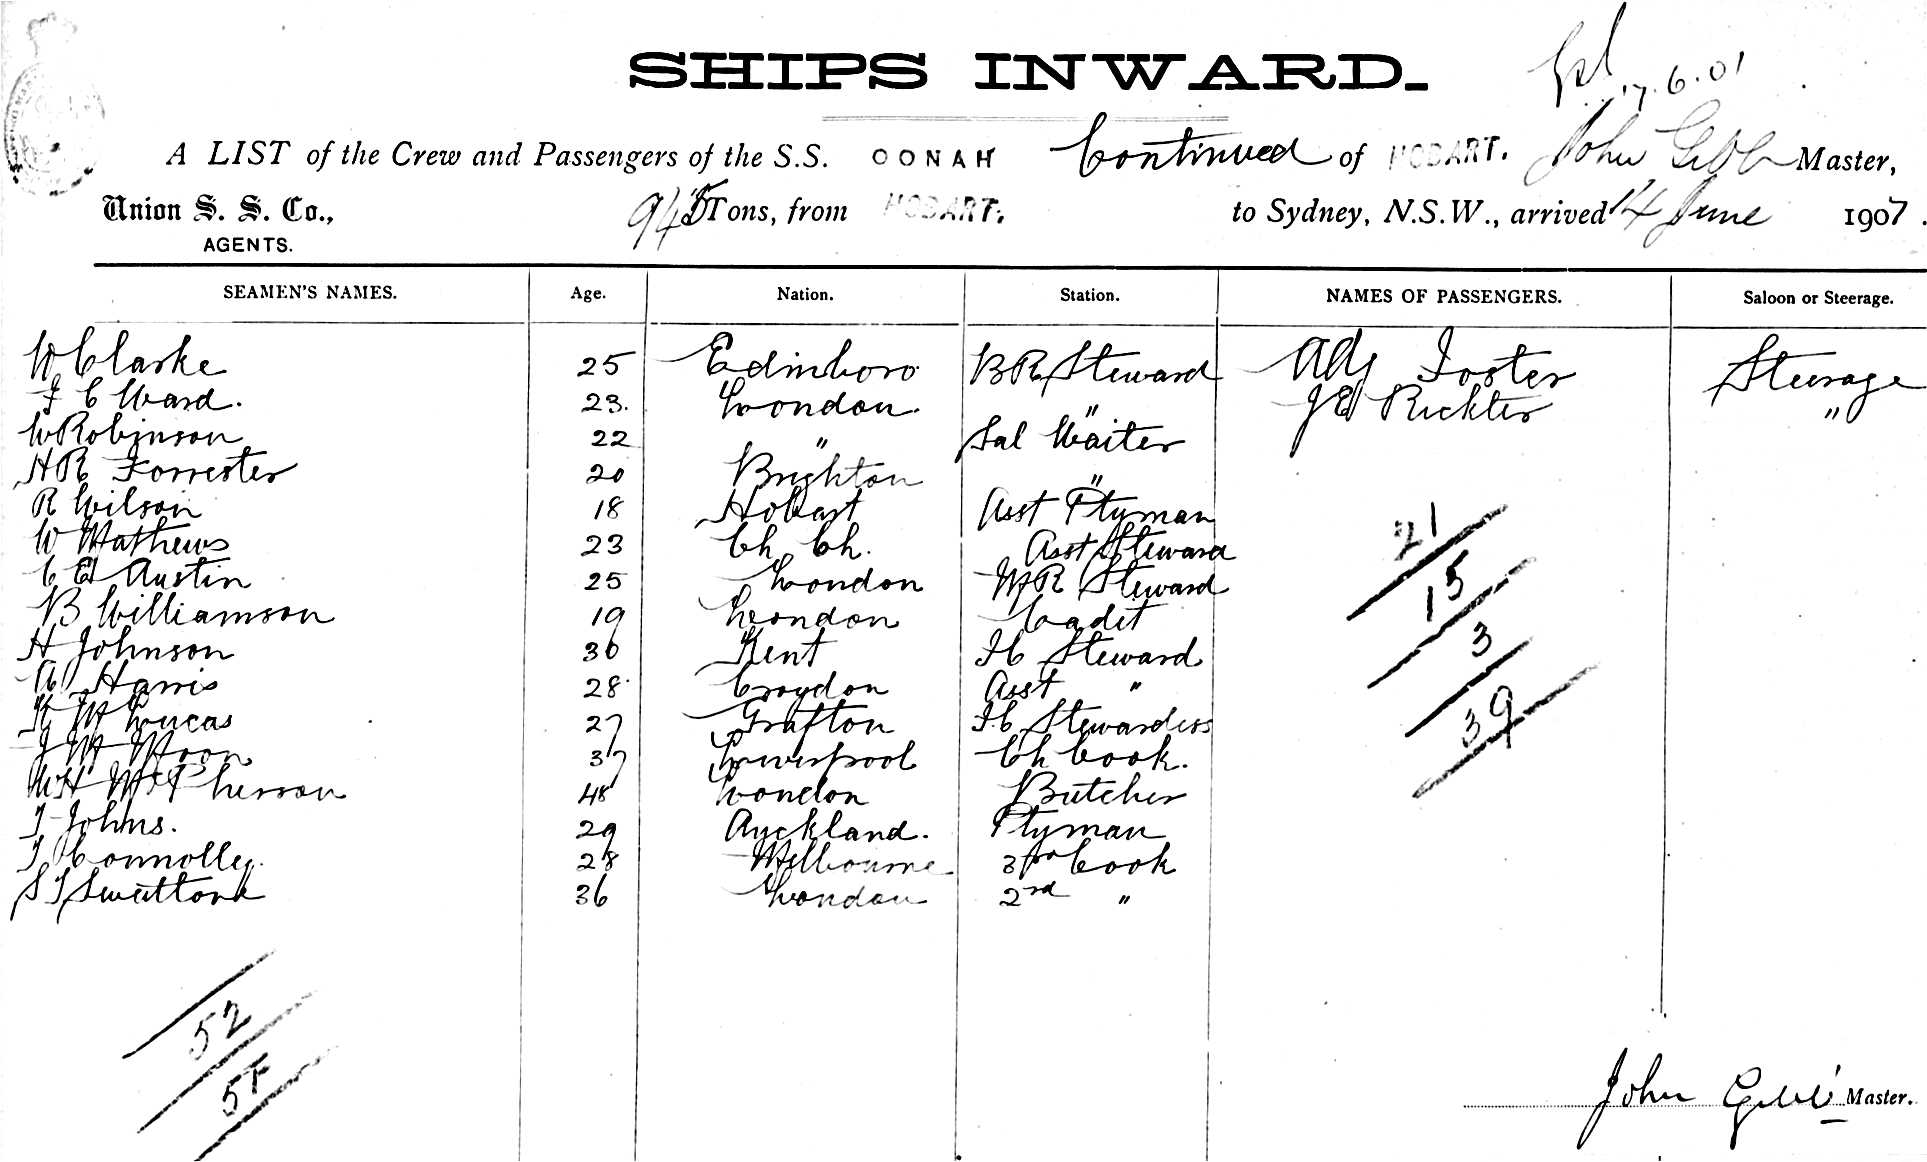 SHIPS INWARD.
17.6.01
A LIST of the Crew and Passengers of the S.S. OONAH Continued of HOBART. John Gibb Master,
Union S. S. Co., 945 Tons, from HOBART. to Sydney, N.S.W., arrived 14 June 1907.
AGENTS.
SEAMEN'S NAMES. Age. Nation. Station. NAMES OF PASSENGERS. Saloon or Steerage.
W Clarke 25 Edinboro BR Steward Foster Steerage
F C Ward. 23. London. " J E Richter "
W Robinson 22 " Sal Waiter
H R Forrester 20 Brighton "
R Wilson 18 Hobart Asst Ptyman
W Mathews 23 Ch Ch. Asst Steward
C E Austin 25 London MR Steward
B Williamson 19 London Cadet
H Johnson 36 Kent F C Steward
A Harris 28 Croydon Asst "
K M Lucas 27 Grafton F.C Stewardess
J M Moon 37 Liverpool Ch Cook.
W H McPherson 48 London Butcher
T Johns. 29 Auckland. Ptyman
T Connolley. 28 Melbourne 3rd Cook
S T Swattone 36 London 2nd "
21
15
3
39
52
John Gibb Master.